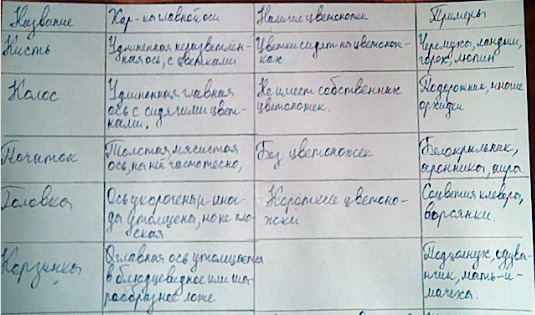 Название
Хар-ки главной оси
Наличие цветоножек
Примеры
Кисть
Удлиненная неразветвлён-
ная ось, с цветками
Цветки сидят на цветонож-
ках
Черёмуха, ландыш,
горох, люпин
Колос
Удлиненная главная
ось с сидячими цвет-
ками.
Не имеет собственных
цветоножек.
Подорожник, многие
орхидеи
Початок
Толстая, мясистая
ось, на ней часто тесно,
Без цветоножек
Белокрыльник,
аронника, аира
Головка
Ось укорочена и ино-
гда утолщена, но не пло-
ская
Короткие цветоно-
жки
Соцветия клевера,
ворсянки.
Корзинка
Главная ось утолщается
в блюдцевидное или ша-
рообразное ложе
Подсолнух, одува-
нчик, мать-и-
мачеха.